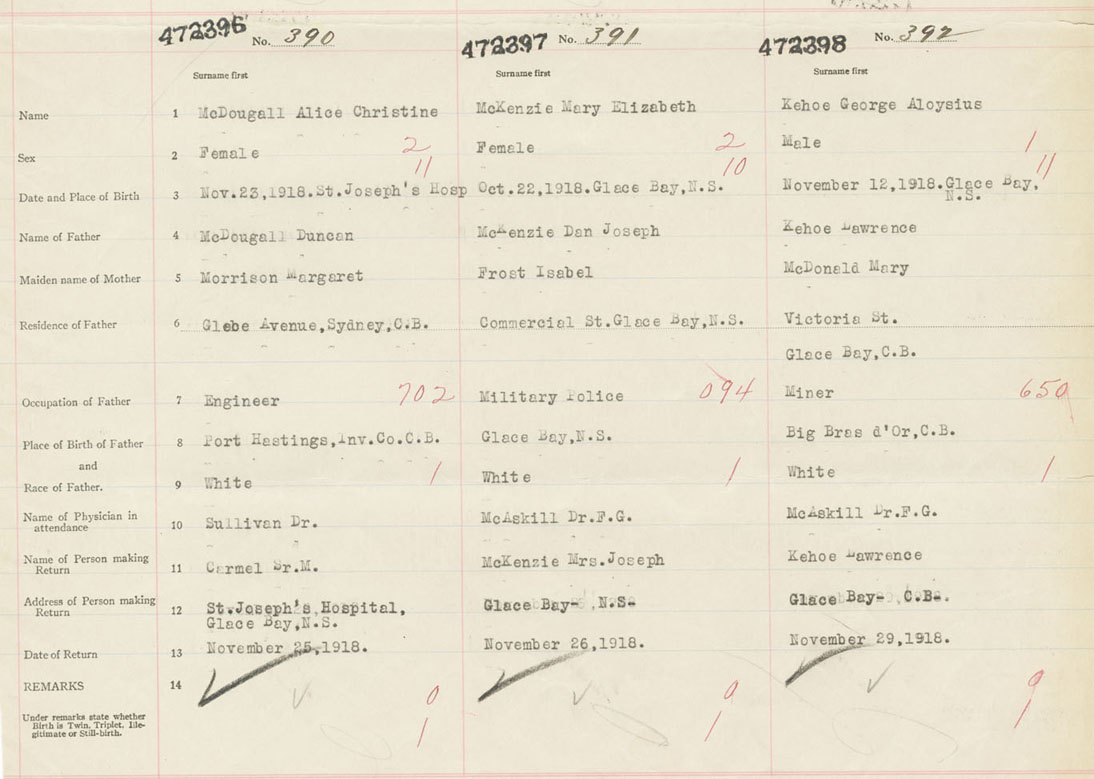 472396 No. 390 472397 No. 391 472398 No. 392
Surname first Surname first Surname first
Name 1 McDougall Alice Christine McKenzie Mary Elizabeth Kehoe George Aloysius
Sex 2 Female 2 Female 2 Male 1
11 10 11
Date and Place of Birth 3 Nov.23,1918.St.Joseph's Hosp Oct.22,1918.Glace Bay,N.S. November 12,1918.Glace Bay,
N.S.
Name of Father 4 McDougall Duncan McKenzie Dan Joseph Kehoe Lawrence
Maiden name of Mother 5 Morrison Margaret Frost Isabel McDonald Mary
Residence of Father 6 Glebe Avenue,Sydney,C.B. Commercial St.Glace Bay,N.S. Victoria St.
Glace Bay,C.B.
Occupation of Father 7 Engineer 702 Military Police 094 Miner 650
Place of Birth of Father 8 Port Hastings,Inv.Co.C.B. Glace Bay,N.S. Big Bras d'Or,C.B.
and
Race of Father. 9 White 1 White 1 White 1
Name of Physician in
attendance 10 Sullivan Dr. McAskill Dr.F.G. McAskill Dr.F.G.
Name of Person making
Return 11 Carmel Sr.M. McKenzie Mrs.Joseph Kehoe Lawrence
Address of Person making
Return 12 St.Joseph's Hospital, Glace Bay- N.S- Glace Bay- C.B-
Glace Bay,N.S.
Date of Return 13 November 25,1918. November 26,1918. November 29,1918.
REMARKS 14
0 0 0
Under remarks state whether
Birth is Twin, Triplet, Ille-
gitimate or Still-birth.
1 1 1